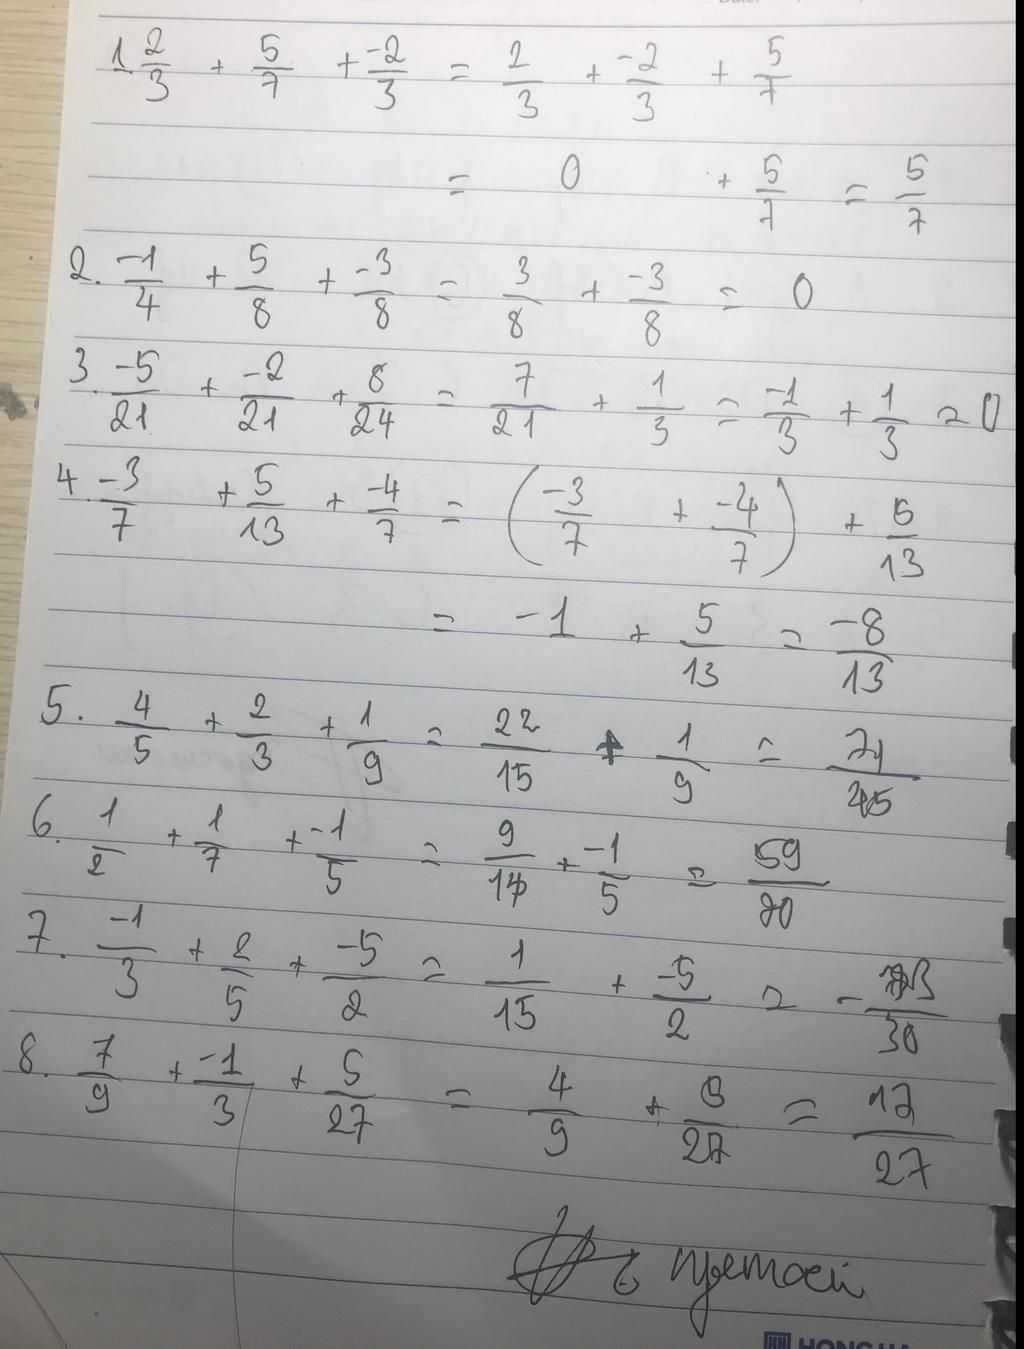 1 2/3 + 5/7 + -2/3 = 2/3 + -2/3 + 5/7
= 0 + 5/7 = 5/7
2. -1/4 + 5/8 + -3/8 = 3/8 + -3/8 = 0
3. -5/21 + -2/21 + 8/24 = 7/21 + 1/3 = -1/3 + 1/3 = 0
4. -3/7 + 5/13 + -4/7 = (-3/7 + -4/7) + 5/13
= -1 + 5/13 = -8/13
5. 4/5 + 2/3 + 1/9 = 22/15 + 1/9 = 71/45
6. 1/2 + 1/7 + -1/5 = 9/14 + -1/5 =
7. -1/3 + 2/5 + -5/2 = 1/15 + -5/2 = -73/30
8. 7/9 + -1/3 + 5/27 = 4/9 + 5/27 = 17/27